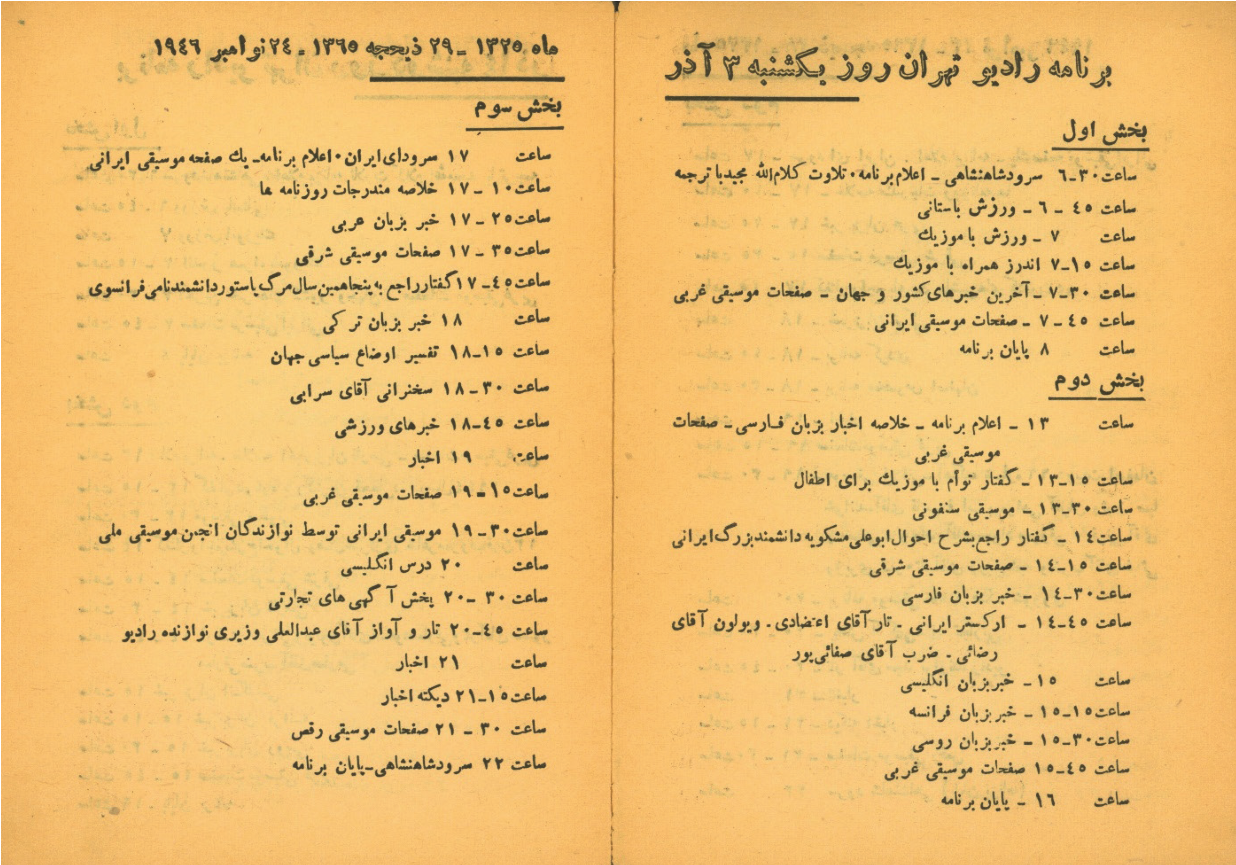 برنامه رادیو تهران روز یکشنبه ۳ آذر
بخش اول
ساعت ۳۰-۶ سرود شاهنشاهی - اعلام برنامه • تلاوت کلام‌الله مجید با ترجمه
ساعت ۴۵ - ۶ - ورزش باستانی
ساعت ۷ - ورزش با موزیک
ساعت ۱۵-۷ اندرز همراه با موزیک
ساعت ۳۰-۷ - آخرین خبرهای کشور و جهان - صفحات موسیقی غربی
ساعت ۴۵ - ۷ - صفحات موسیقی ایرانی
ساعت ۸ پایان برنامه
بخش دوم
ساعت ۱۳ - اعلام برنامه - خلاصه اخبار بزبان فارسی - صفحات
موسیقی غربی
ساعت ۱۵-۱۳ - گفتار توأم با موزیک برای اطفال
ساعت ۳۰-۱۳ - موسیقی سنفونی
ساعت ۱۴ - گفتار راجع بشرح احوال ابوعلی مشکویه دانشمند بزرگ ایرانی
ساعت ۱۵-۱۴ - صفحات موسیقی شرقی
ساعت ۳۰-۱۴ - خبر بزبان فارسی
ساعت ۴۵-۱۴ - ارکستر ایرانی - تار آقای اعتضادی - ویولون آقای
رضائی - ضرب آقای صفائی‌پور
ساعت ۱۵ - خبر بزبان انگلیسی
ساعت ۱۵-۱۵ - خبر بزبان فرانسه
ساعت ۳۰-۱۵ - خبر بزبان روسی
ساعت ۴۵-۱۵ صفحات موسیقی غربی
ساعت ۱۶ - پایان برنامه
ماه ۱۳۲۵ - ۲۹ ذیحجه ۱۳۶۵ - ۲۴ نوامبر ۱۹۴۶
بخش سوم
ساعت ۱۷ سرود ای ایران • اعلام برنامه - یك صفحه موسیقی ایرانی
ساعت ۱۰ - ۱۷ خلاصه مندرجات روزنامه ها
ساعت ۲۵ - ۱۷ خبر بزبان عربی
ساعت ۳۵ - ۱۷ صفحات موسیقی شرقی
ساعت ۴۵-۱۷ گفتار راجع به پنجاهمین سال مرگ پاستور دانشمند نامی فرانسوی
ساعت ۱۸ خبر بزبان ترکی
ساعت ۱۵-۱۸ تفسیر اوضاع سیاسی جهان
ساعت ۳۰ - ۱۸ سخنرانی آقای سرابی
ساعت ۴۵-۱۸ خبرهای ورزشی
ساعت ۱۹ اخبار
ساعت ۱۵ - ۱۹ صفحات موسیقی غربی
ساعت ۳۰ - ۱۹ موسیقی ایرانی توسط نوازندگان انجمن موسیقی ملی
ساعت ۲۰ درس انگلیسی
ساعت ۳۰ - ۲۰ پخش آگهی های تجارتی
ساعت ۴۵-۲۰ تار و آواز آقای عبدالعلی وزیری نوازنده رادیو
ساعت ۲۱ اخبار
ساعت ۱۵-۲۱ دیکته اخبار
ساعت ۳۰ - ۲۱ صفحات موسیقی رقص
ساعت ۲۲ سرود شاهنشاهی - پایان برنامه